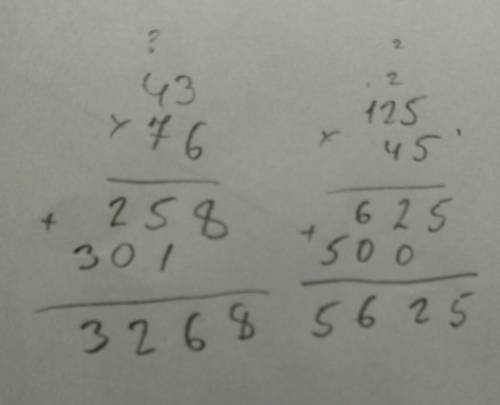 ?
43
× 76
+ 258
301
3268
2
2
125
× 45
+ 625
500
5625